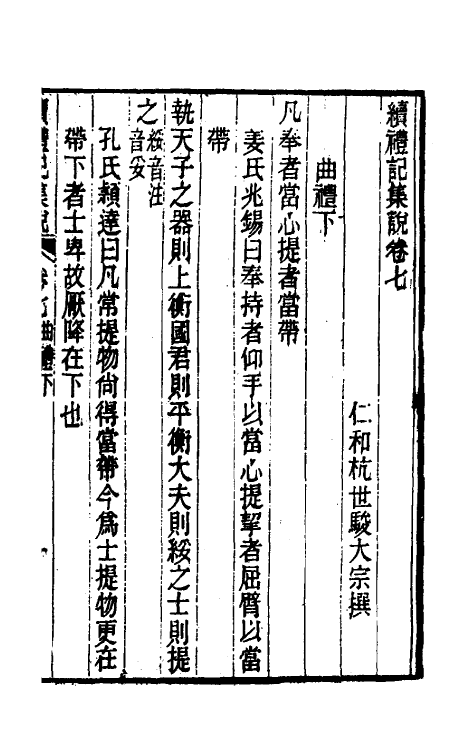 續禮記集說卷七
仁和杭世駿大宗撰
曲禮下
凡奉者當心提者當帶
姜氏兆錫曰奉持者仰手以當心提挈者屈臂以當
帶
執天子之器則上衡國君則平衡大夫則綏之士則提
之綏音注音妥
孔氏穎達曰凡常提物尙得當帶今爲士提物更在
帶下者士卑故厭降在下也
續禮記集說卷七曲禮下